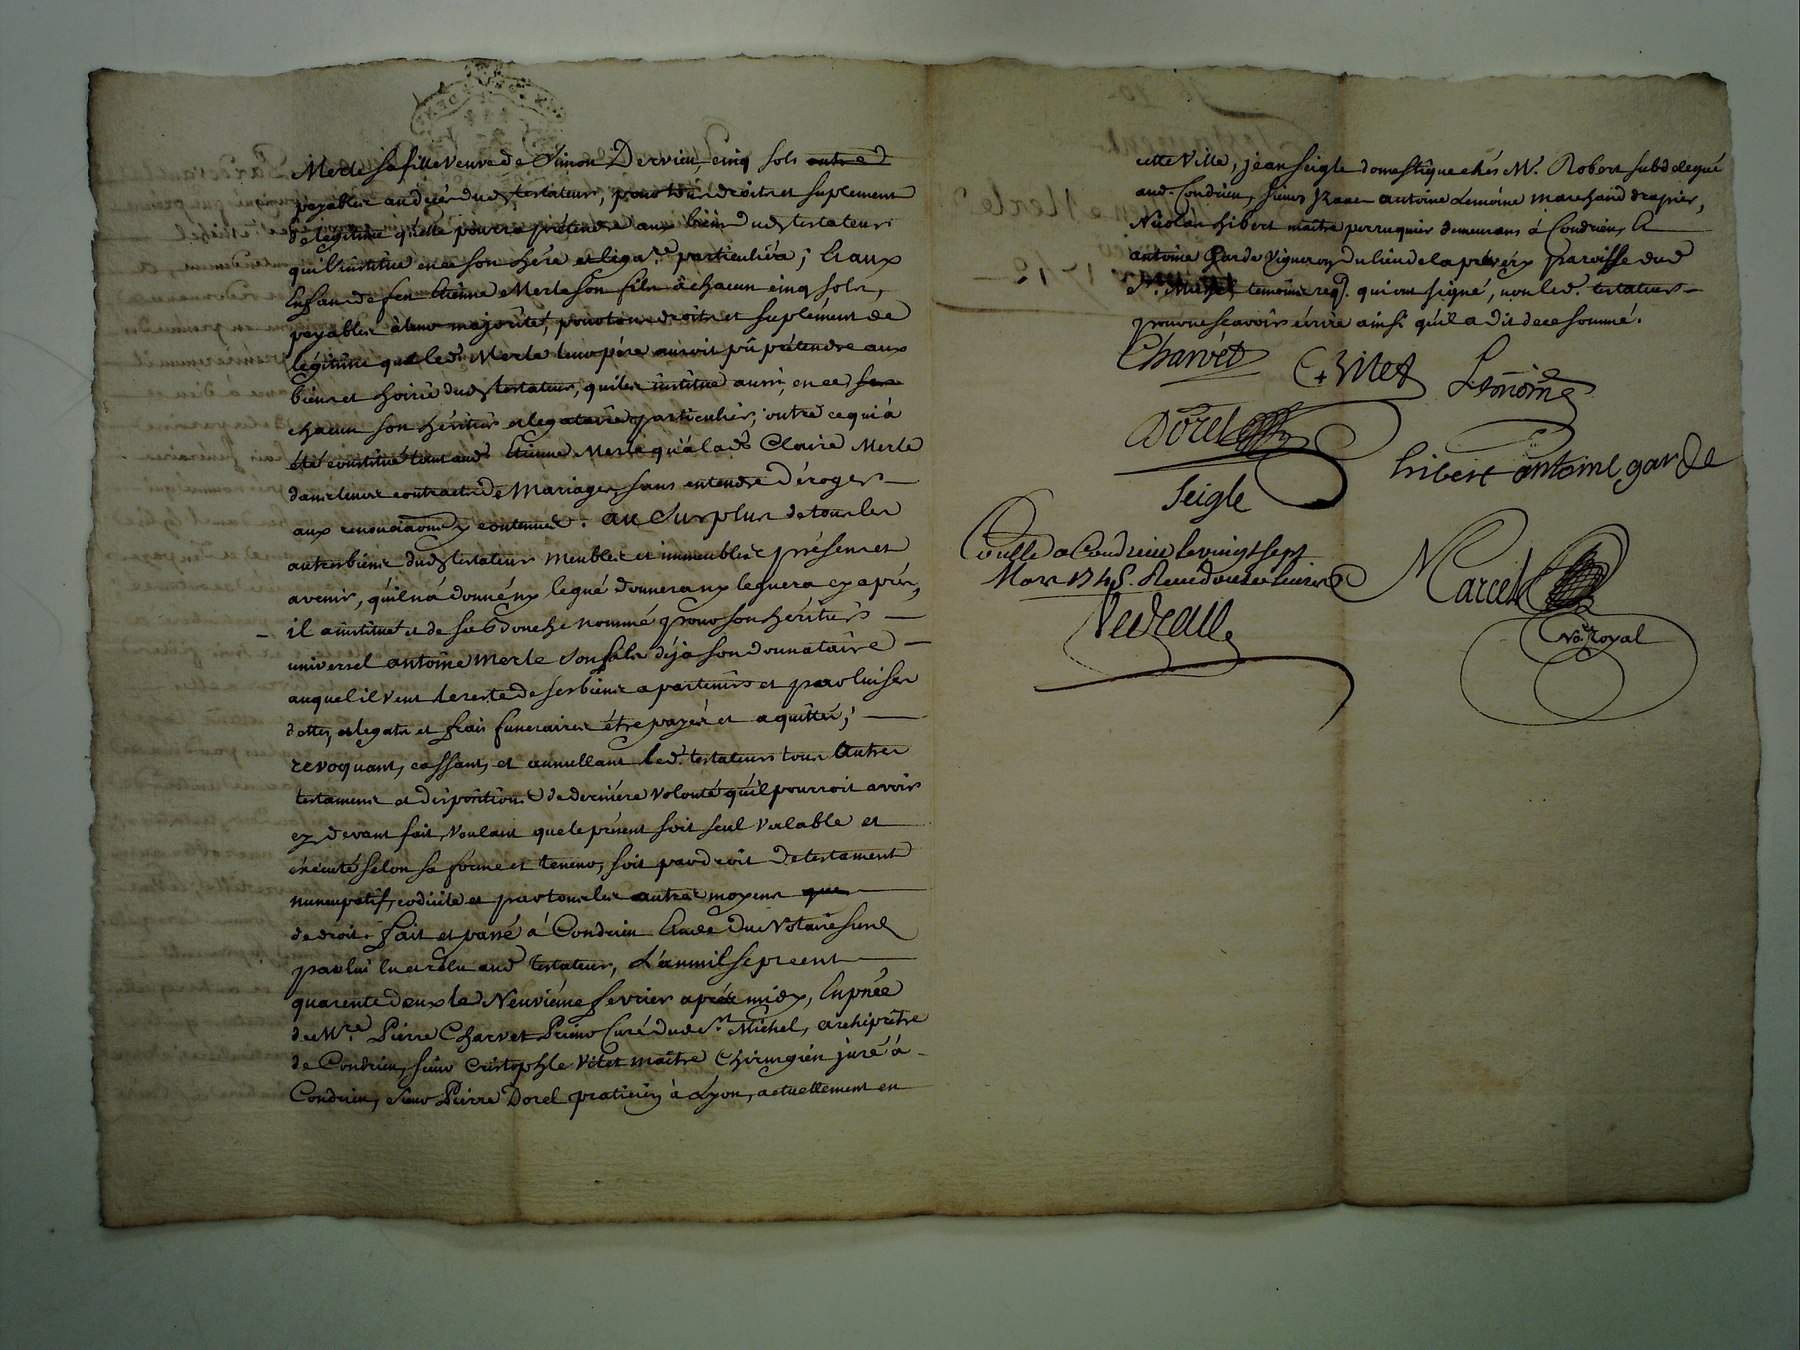 Merle sa fille veuve de Simon Dervieu, cinq sols outre d
payable au décès dud. testateur, pour tous droits et suplement
de légitime qu'elle pourra prétendre aux biens dud. testateur
qu'il institue en ce son hére. et léga.re particuliéra; Et aux
Enfans de feu Etienne Merle son fils à chacun cinq sols,
payable à leur majorité, pour tous droits et suplément de
légitime que led. Merle leur pére auroit pû prétendre aux
biens et hoirie dud. testateur, qu'il les institue aussi, en ce
chacun son héritier et légataire particulier, outre ce qui a
été constitué tant aud. Etienne Merle qu'à lad. Claire Merle
dans leurs contracts de Mariages, sans entendre déroger
aux renonciations y contenues. Au Surplus de tous les
autres biens dud. testateur meubles et immeubles présens et
avenir, qu'il n'a donné ny legué donnera ny leguera cy aprés,
il a institué et de sa bouche nommé pour son héritier
universel antoine Merle son fils déja son donnataire
auquel il veut le reste de ses biens apartenir et par lui ses
dettes, et legats et frais funeraires être payés et aquittés;
revoquant, cassant, et annullant led. testateur tous Autres
testamens et dispositions de derniére volonté qu'il pourroit avoir
cy devant fait, voulant que le présent soit seul valable et
éxécuté selon sa forme et teneur, soit par droit de testament
nuncupatif, codicile et par tous les autres moyens que
de droit. fait et passé à Condrieu Etude du Notaire sousd.
par lui lu et relu aud. testateur, L'an mil sept cent
quarente deux le Neuviéme fevrier aprés midy, En p'nce
de Mre. Pierre Charvet Prieur Curé dud. St. Michel, archiprêtre
de Condrieu, sieur Cristophle Vitet maître Chirurgien juré à
Condrieu, sieur Pierre Dorel praticien à Lyon, actuellement en
cette Ville, jean Seigle domestique chés Mr. Robert subdelegué
aud. Condrieu, sieurs antoine Lemoine marchand drapier,
Nicolas hibert maître perruquier demeurans à Condrieu, Et
antoine Garde Vigneron du lieu de paroisse dud.
St. Michel temoins req. qui ont signé, non led. testateur
pour ne sçavoir écrire ainsi qu'il a dit de ce sommé.
Charvet
C. Vitet
Lemoine
Dorel
hibert antoine garde
Seigle
Conllé a Condrieu le vingt sept
Mars 174. Receu douze
Marcet
Nore Royal